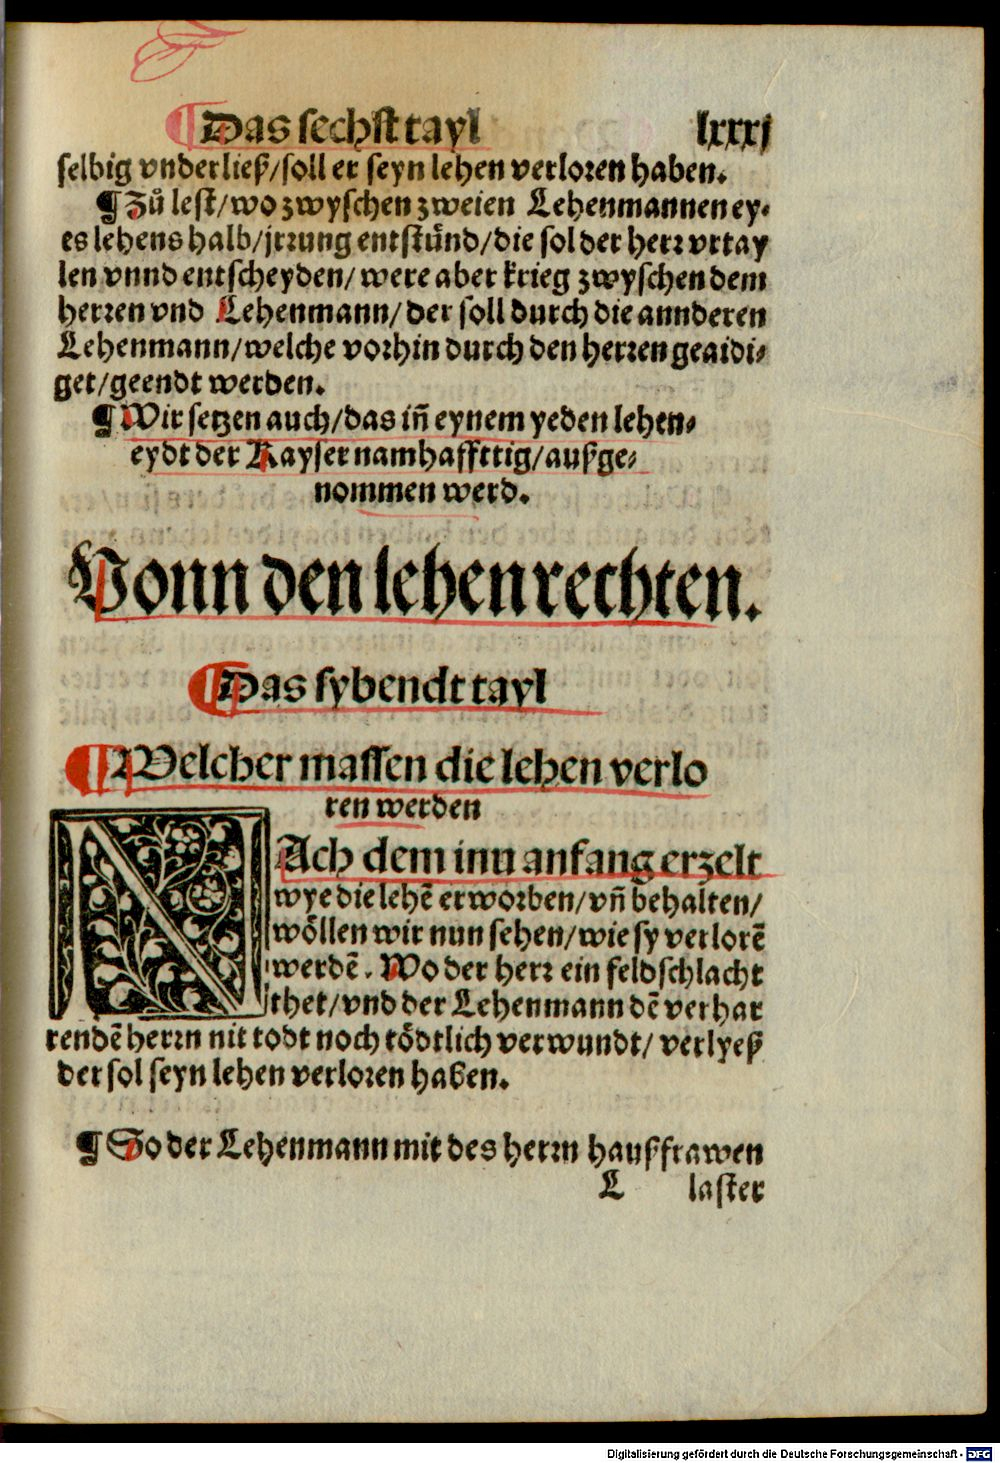 ¶ Das sechst tayl lxxxj
selbig vnderließ/soll er seyn lehen verloren haben.
¶ Zů lest/wo zwyschen zweien Lehenmannen ey⸗
es lehens halb/jrrung entstůnd/die sol der herr vrtay
len vnnd entscheyden/ were aber krieg zwyschen dem
herren vnd Lehenmann/ der soll durch die annderen
Lehenmann/welche vorhin durch den herren geaidi⸗
get/geendt werden.
¶ Wir setzen auch/das in̄ eynem yeden lehen⸗
eydt der Kayser namhaffttig/außge⸗
nommen werd.
Vonn den lehenrechten.
¶ Das sybendt tayl
¶ Welcher massen die lehen verlo
ren werden
NAch dem inn anfang erzelt
wye die lehē erworben/vn̄ behalten/
wöllen wir nun sehen/wie sy verlorē
werdē. Wo der herr ein feldschlacht
thet/vnd der Lehenmann dē verhar
rendē herrn nit todt noch tödtlich verwundt/ verlyeß
der sol seyn lehen verloren haben.
¶ So der Lehenmann mit des herrn haußfrawen
L laster
Digitalisierung gefördert durch die Deutsche Forschungsgemeinschaft - DFG